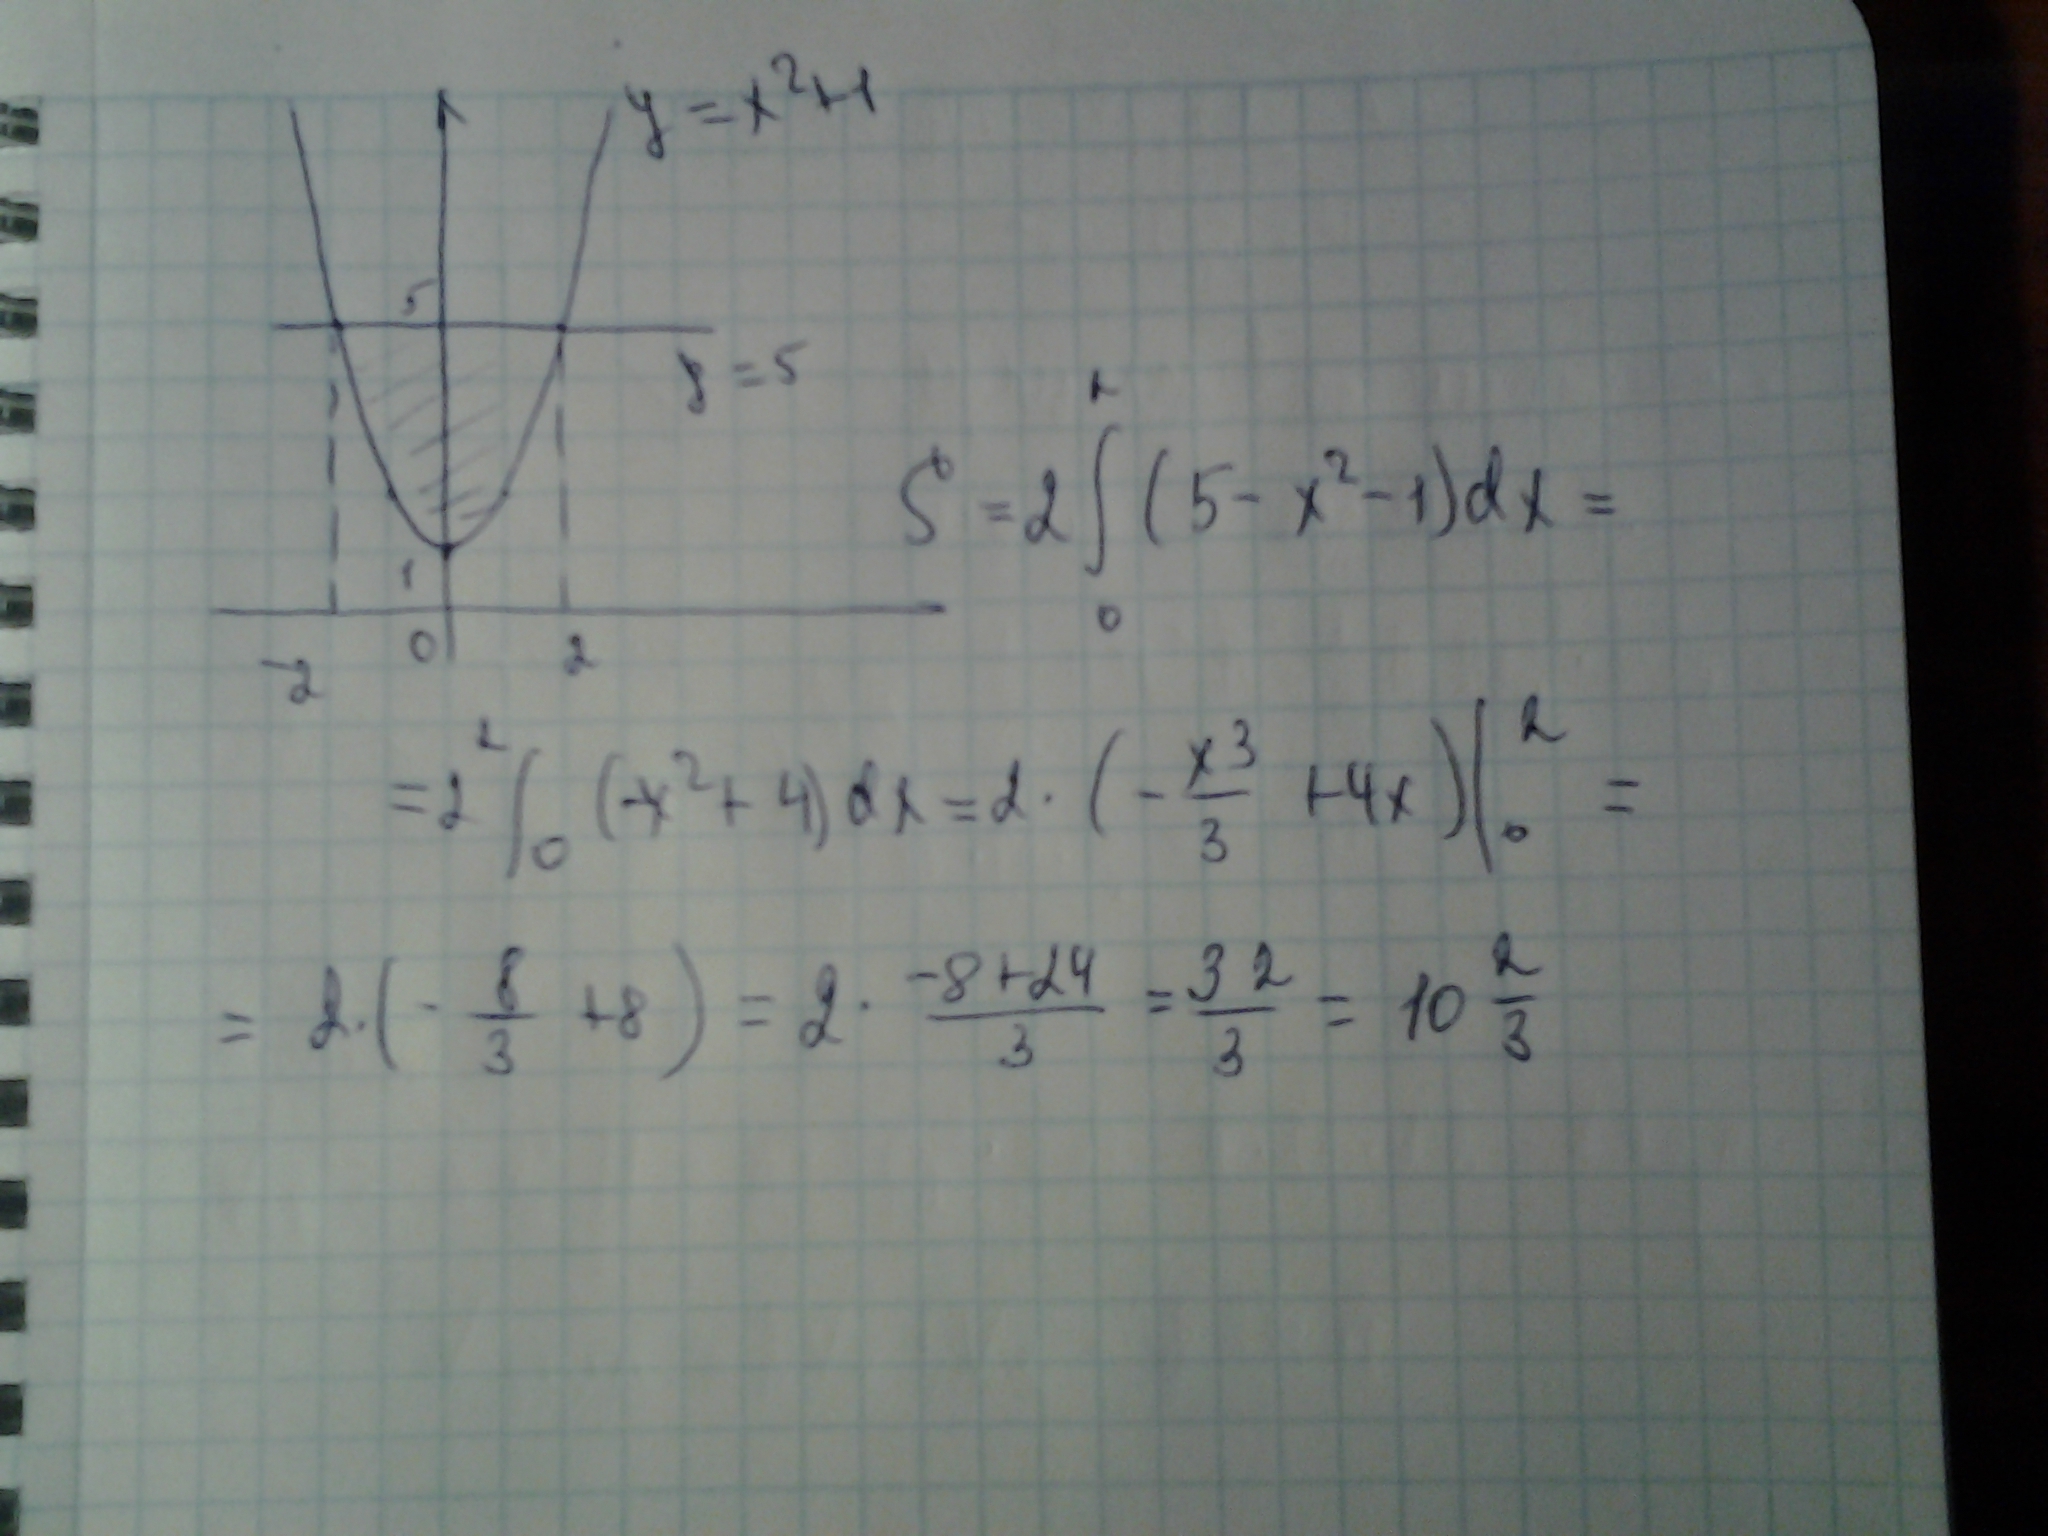 y = x²+1
5
y = 5
1
-2 0 2
S = 2∫₀² (5 - x² - 1)dx =
= 2 ²∫₀ (-x² + 4) dx = 2 · (- x³/3 + 4x) |₀² =
= 2 · (- 8/3 + 8) = 2 · (-8+24)/3 = 32/3 = 10 2/3